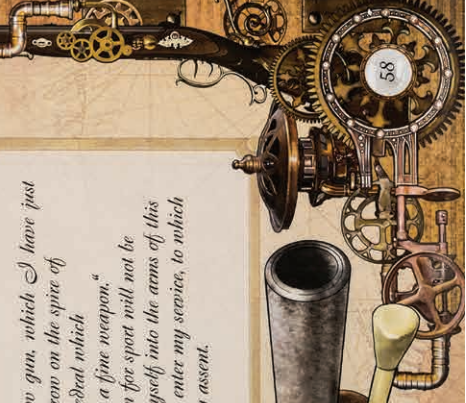 58
gun, which I have just
on the spire of
which
a fine weapon."
for sport will not be
myself into the arms of this
enter my service, to which
assent.